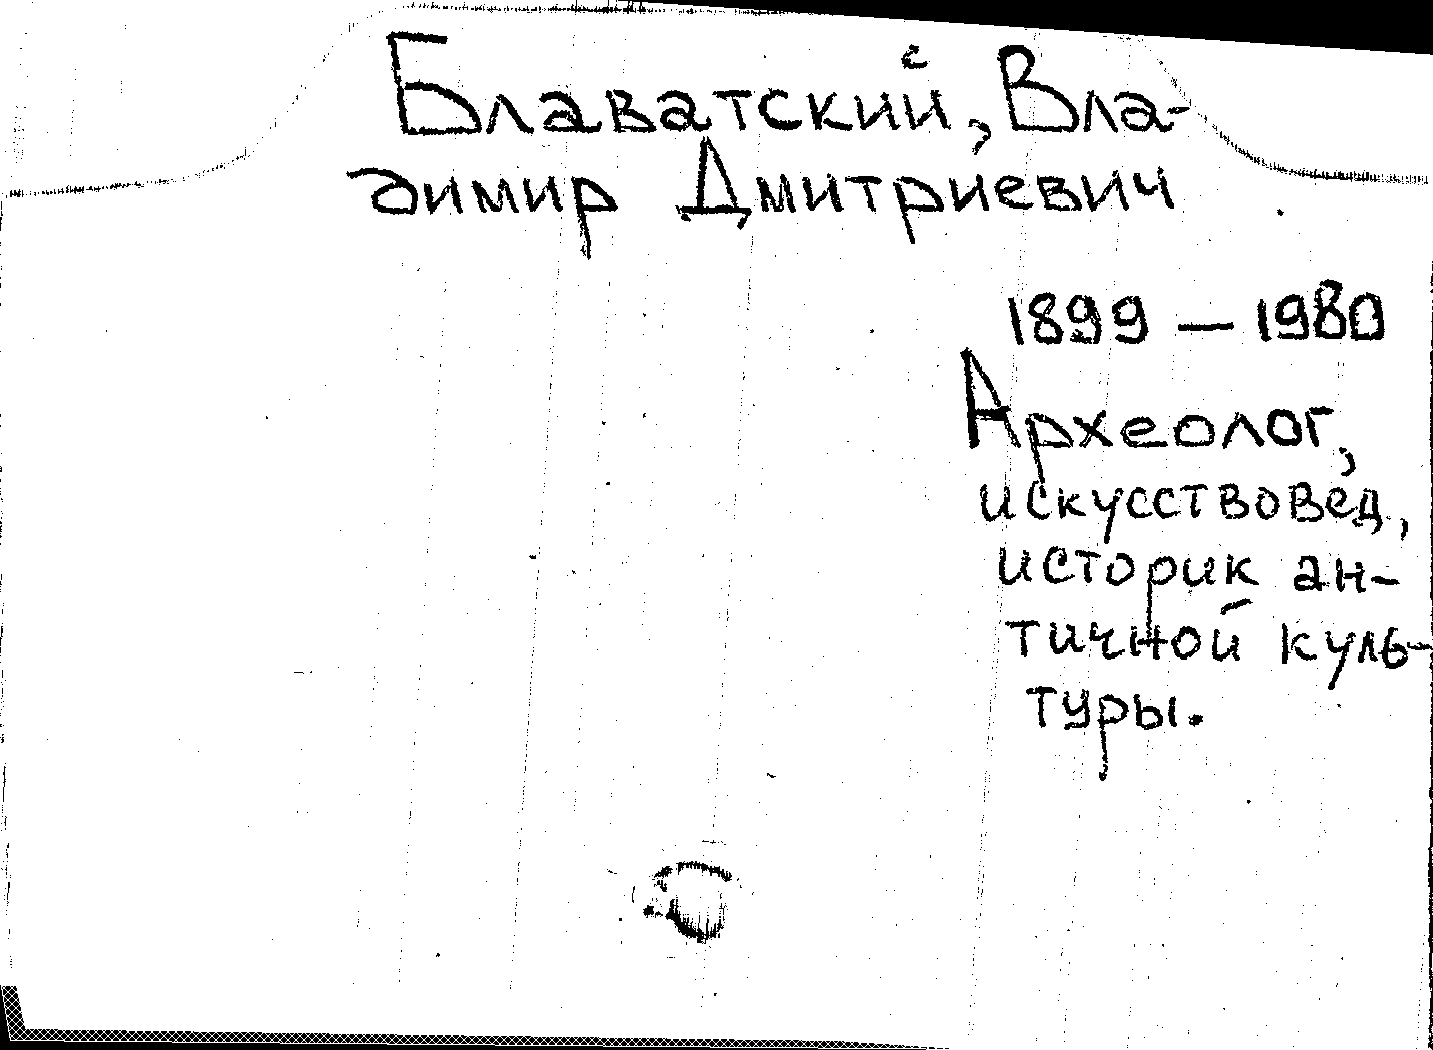 Блаватский, Вла-
димир Дмитриевич
1899 — 1980
Археолог,
искусствовед,
историк ан-
тичной куль-
туры.